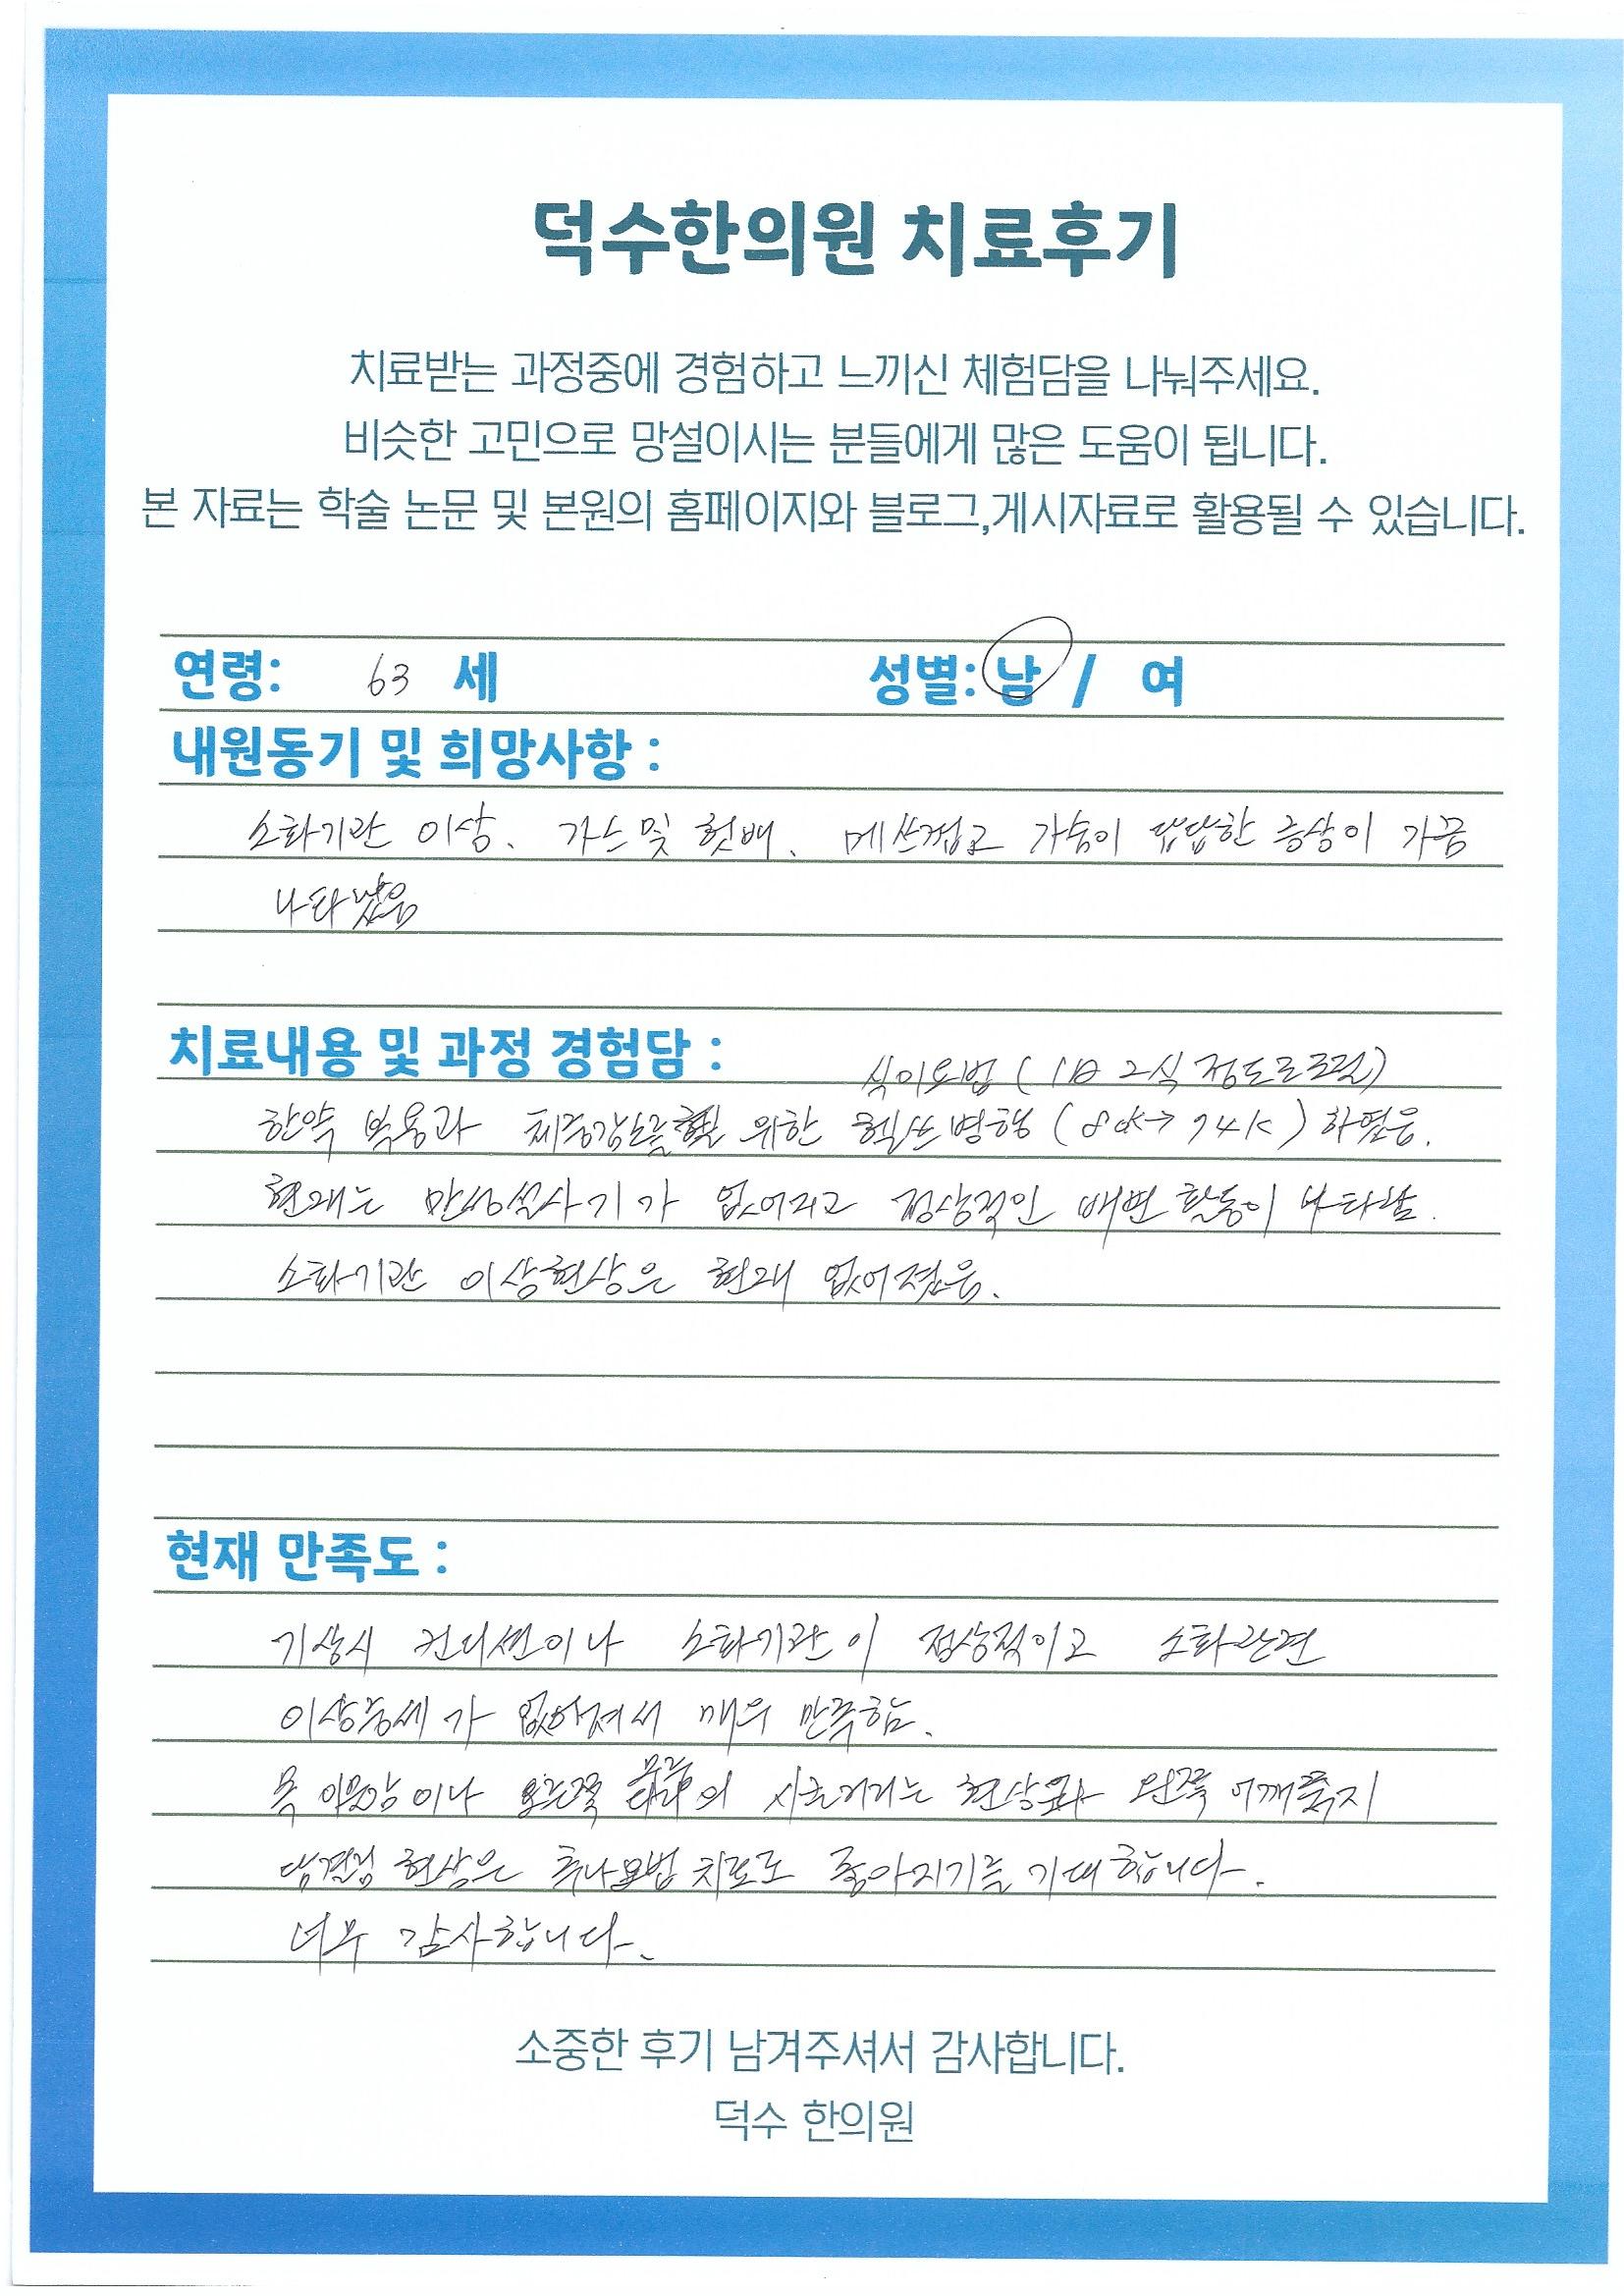 덕수한의원 치료후기
치료받는 과정중에 경험하고 느끼신 체험담을 나눠주세요.
비슷한 고민으로 망설이시는 분들에게 많은 도움이 됩니다.
본 자료는 학술 논문 및 본원의 홈페이지와 블로그,게시자료로 활용될 수 있습니다.
연령: 63 세 성별: 남 / 여
내원동기 및 희망사항 :
소화기관 이상, 가스 및 헛배, 메쓰껍고 가슴이 답답한 증상이 가끔
나타났음
치료내용 및 과정 경험담 :
식이요법 ( 1日 2식 정도로 조절)
한약 복용과 체중감소를 위한 헬쓰병행 ( 80K→74K ) 하였음.
현재는 만성설사기가 없어지고 정상적인 배변 활동이 나타남.
소화기관 이상현상은 현재 없어졌음.
현재 만족도 :
기상시 컨디션이나 소화기관이 정상적이고 소화관련
이상증세가 없어져서 매우 만족함.
목 이물감이나 오른쪽 무릎의 시큰거리는 현상과 왼쪽 어깨쭉지
담결림 현상은 추나요법 치료로 좋아지기를 기대합니다.
너무 감사합니다.
소중한 후기 남겨주셔서 감사합니다.
덕수 한의원